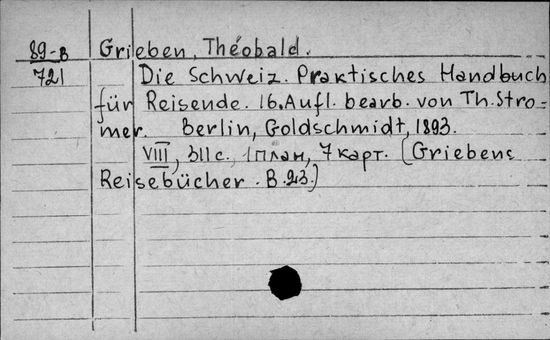 89-в Grieben, Théobald.
721 Die Schweiz. Praktisches Handbuch
für Reisende. 16.Aufl. bearb. von Th. Stro-
mer. Berlin, Goldschmidt, 1893.
VIII, 311 с., 1 план, 7 карт. (Griebens
Reisebücher. B.23.)